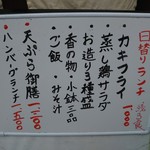 日替りランチ
カキフライ
蒸し鶏サラダ
お造り3種盛
香の物・小鉢二品
ご飯・みそ汁
一〇〇〇
天ぷら御膳
一二〇〇
ハンバーグランチ
一五〇〇